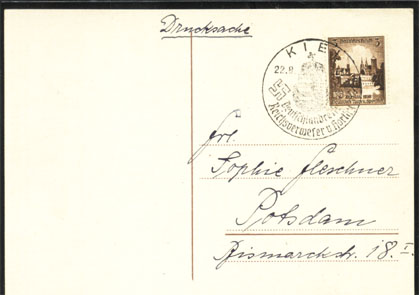 Drucksache
KIEL
22.8
Reichsverweser v. Horthy
Frl.
Sophie Fleschner
Potsdam
Bismarckstr. 18. I.